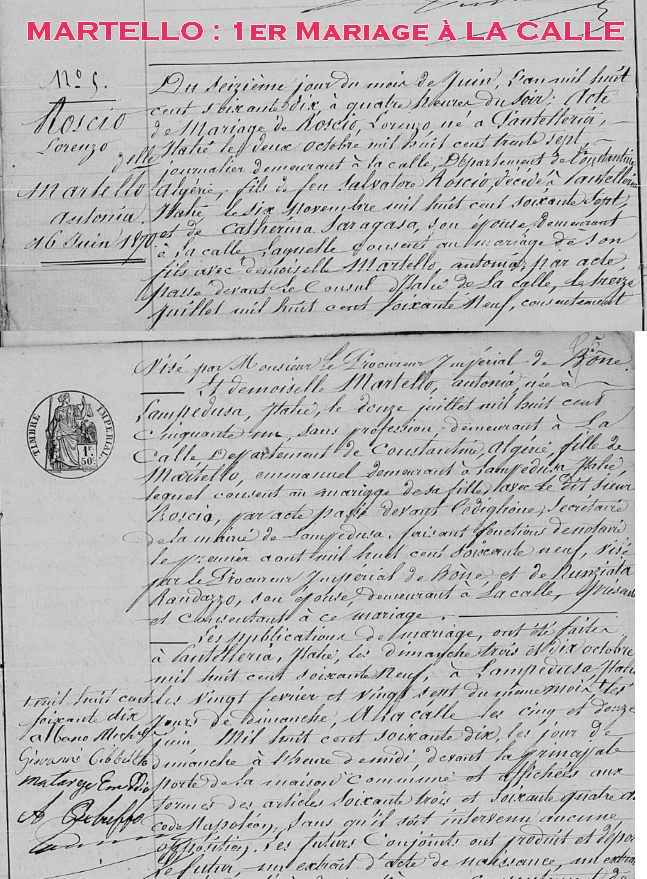 MARTELLO : 1ER MARIAGE À LA CALLE
N° 5.
Roscio
Lorenzo
&
Dlle
Martello
antonia
16 Juin 1870
Du seizième jour du mois de Juin, l'an mil huit
cent soixante dix, à quatre heures du soir; Acte
de Mariage de Roscio, Lorenzo, né à Pantelleria,
Italie le deux octobre mil huit cent trente sept,
journalier demeurant à la calle, Département de Constantine
Algérie, fils de feu Salvatore Roscio, décédé à Pantelleria
Italie, le six Novembre mil huit cent soixante sept,
et de Catherina Saragasa, son épouse, demeurant
à La calle, laquelle consent au mariage de son
fils avec demoiselle Martello, antonia, par acte
passé devant le Consul d'Italie de La calle, le treize
juillet mil huit cent soixante neuf, consentement
Visé par Monsieur le Procureur Impérial de Bône.
Et demoiselle Martello, antonia, née à
Lampedusa, Italie, le douze juillet mil huit cent
cinquante un, sans profession, demeurant à La
Calle Département de Constantine, Algérie, fille de
Martello, emmanuel demeurant à Lampedusa Italie,
lequel consent au mariage de sa fille, avec le dit sieur
Roscio, par acte passé devant secrétaire
de la mairie de Lampedusa, faisant fonctions de notaire
le premier aout mil huit cent soixante neuf, visé
par le Procureur Impérial de Bône, et de Nunziata
Randazzo, son épouse, demeurant à La calle, présente
et consentant à ce mariage.
Les publications de mariage, ont été faites
à Pantelleria, Italie, les dimanche trois et dix octobre
mil huit cent soixante neuf, à Lampedusa Italie
les vingt fevrier et vingt sept du même mois + les
jours de dimanche; A La calle les cinq et douze
juin, mil huit cent soixante dix, les jour de
dimanche à l'heure de midi, devant la principale
porte de la maison commune et affichées aux
formes des articles soixante trois et soixante quatre du
code Napoléon, sans qu'il soit intervenu aucune
opposition, Les futurs Conjoints ont produit et déposé
le futur, un extrait d'acte de naissance, un extrait
TIMBRE IMPERIAL
1F
50C
+ mil huit cent
soixante dix